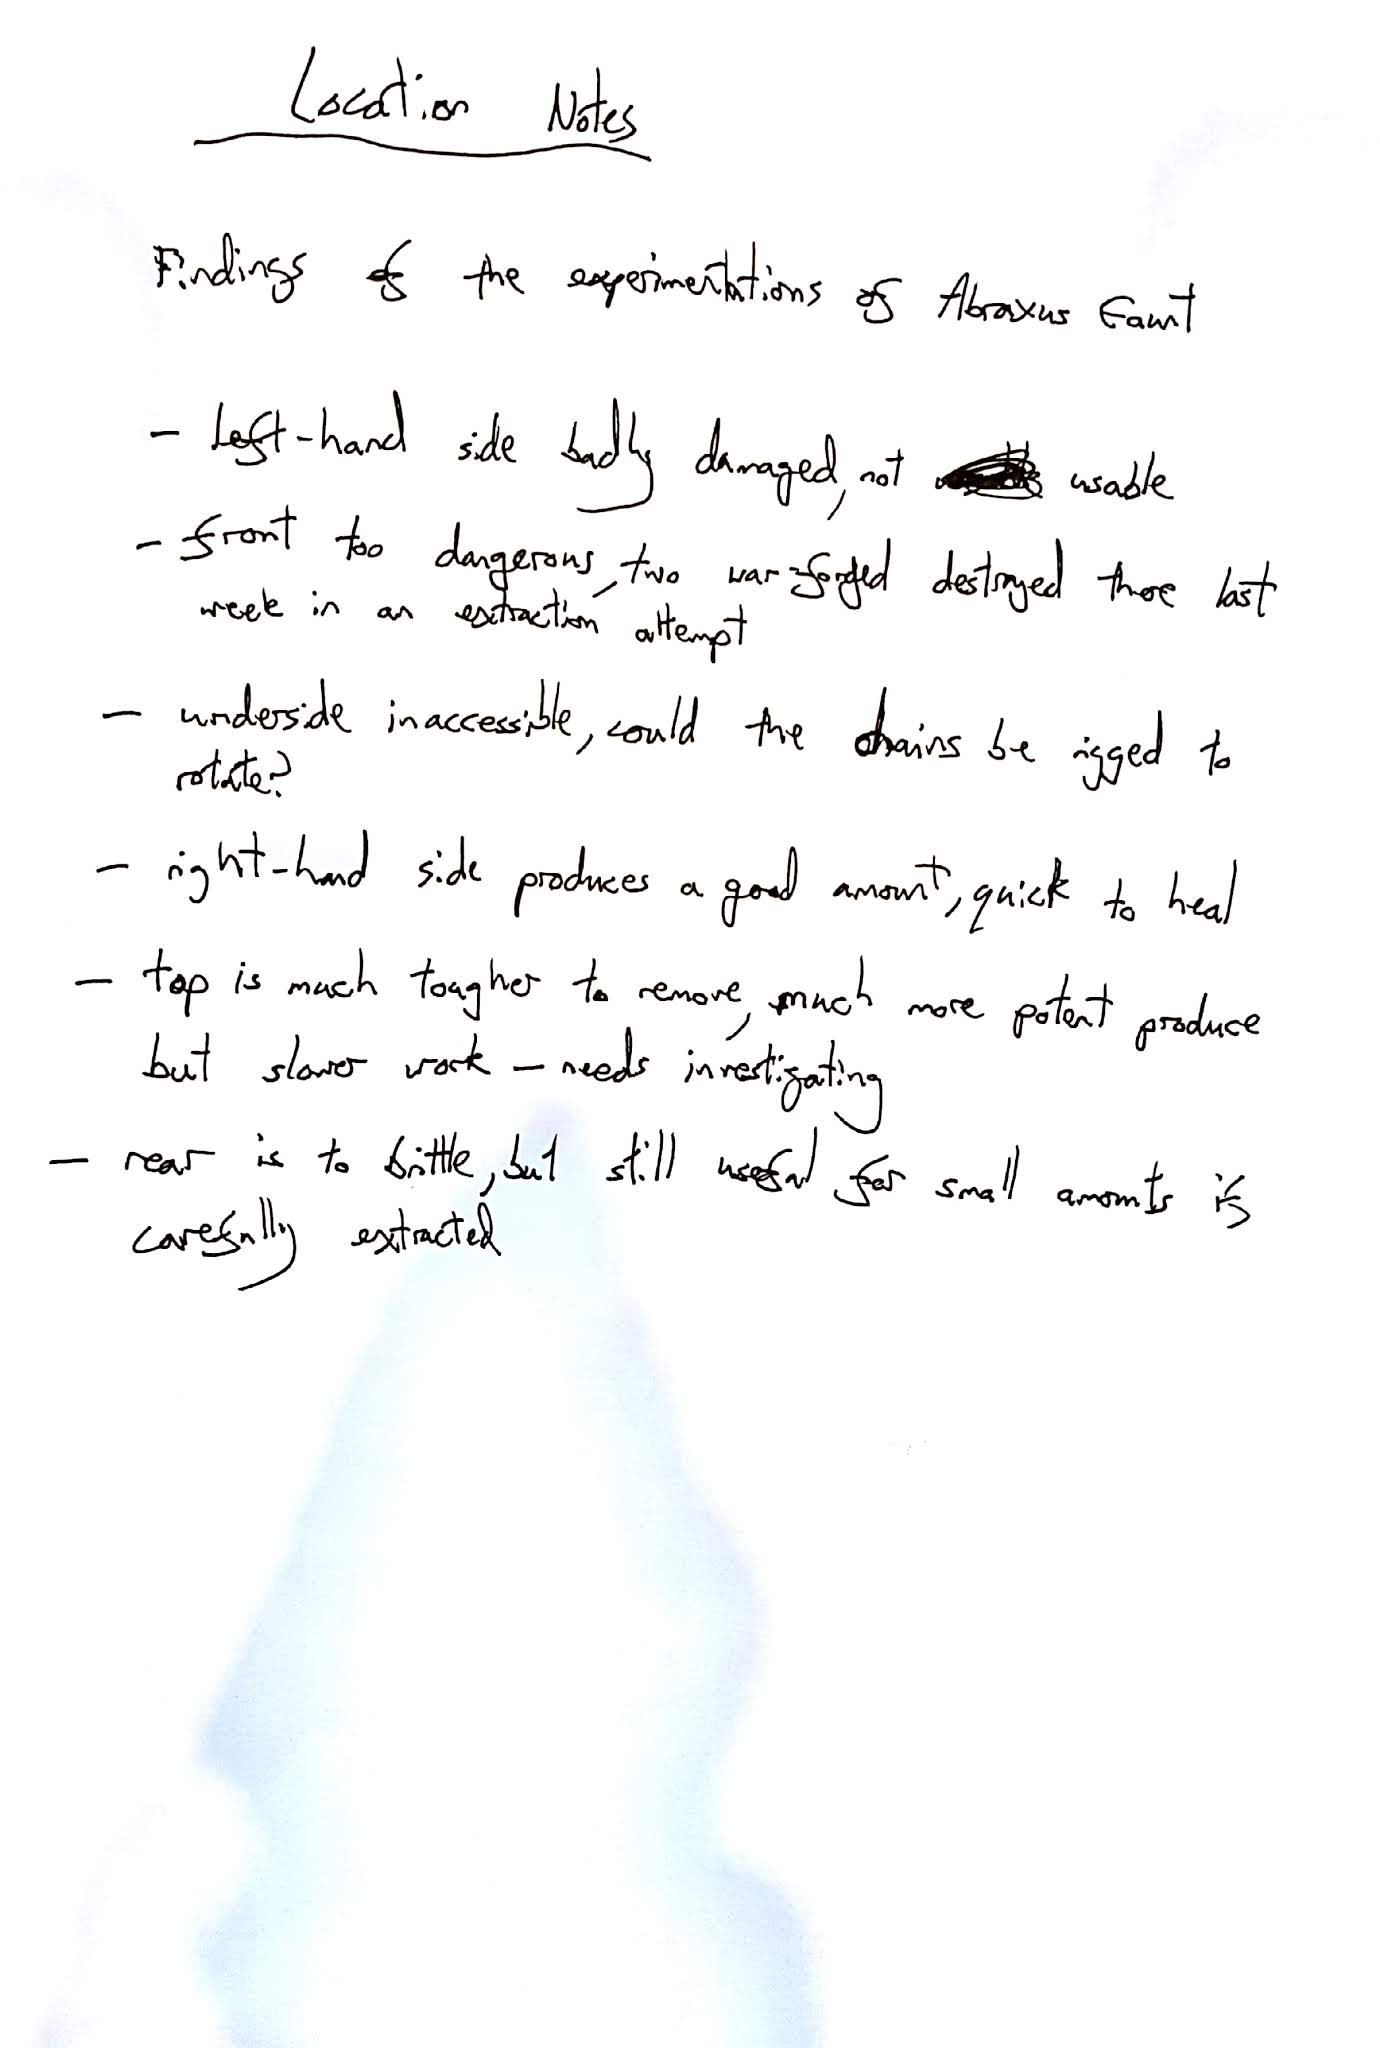 Location Notes
Findings of the experimentations of Abraxus Gaunt
- left-hand side badly damaged, not usable
- front too dangerous, two war-forged destroyed there last
week in an extraction attempt
- underside inaccessible, could the chains be rigged to
rotate?
- right-hand side produces a good amount, quick to heal
- top is much tougher to remove, much more potent produce
but slower work - needs investigating
- rear is to brittle, but still useful for small amounts if
carefully extracted